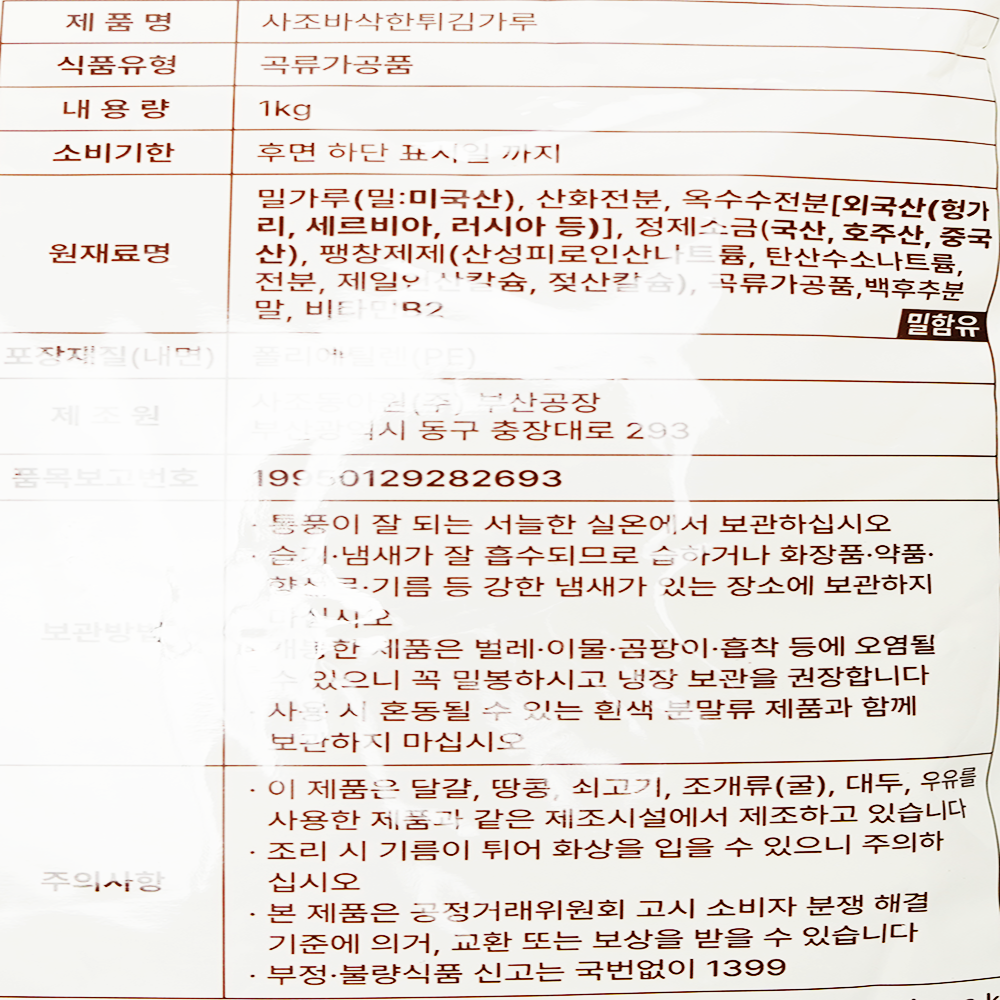 제 품 명 사조바삭한튀김가루
식품유형 곡류가공품
내 용 량 1kg
소비기한 후면 하단 표시일 까지
원재료명
밀가루(밀:미국산), 산화전분, 옥수수전분[외국산(헝가
리, 세르비아, 러시아 등)], 정제소금(국산, 호주산, 중국
산), 팽창제제(산성피로인산나트륨, 탄산수소나트륨,
전분, 제일인산칼슘, 젖산칼슘), 곡류가공품,백후추분
말, 비타민B2
밀함유
포장재질(내면) 폴리에틸렌(PE)
제 조 원
(주) 부산공장
부산광역시 동구 충장대로 293
품목보고번호 19950129282693
보관방법
· 통풍이 잘 되는 서늘한 실온에서 보관하십시오
· 습기·냄새가 잘 흡수되므로 습하거나 화장품·약품·
향신료·기름 등 강한 냄새가 있는 장소에 보관하지
마십시오
· 개봉한 제품은 벌레·이물·곰팡이·흡착 등에 오염될
수 있으니 꼭 밀봉하시고 냉장 보관을 권장합니다
· 사용 시 혼동될 수 있는 흰색 분말류 제품과 함께
보관하지 마십시오
주의사항
· 이 제품은 달걀, 땅콩, 쇠고기, 조개류(굴), 대두, 우유를
사용한 제품과 같은 제조시설에서 제조하고 있습니다
· 조리 시 기름이 튀어 화상을 입을 수 있으니 주의하
십시오
· 본 제품은 공정거래위원회 고시 소비자 분쟁 해결
기준에 의거, 교환 또는 보상을 받을 수 있습니다
· 부정·불량식품 신고는 국번없이 1399